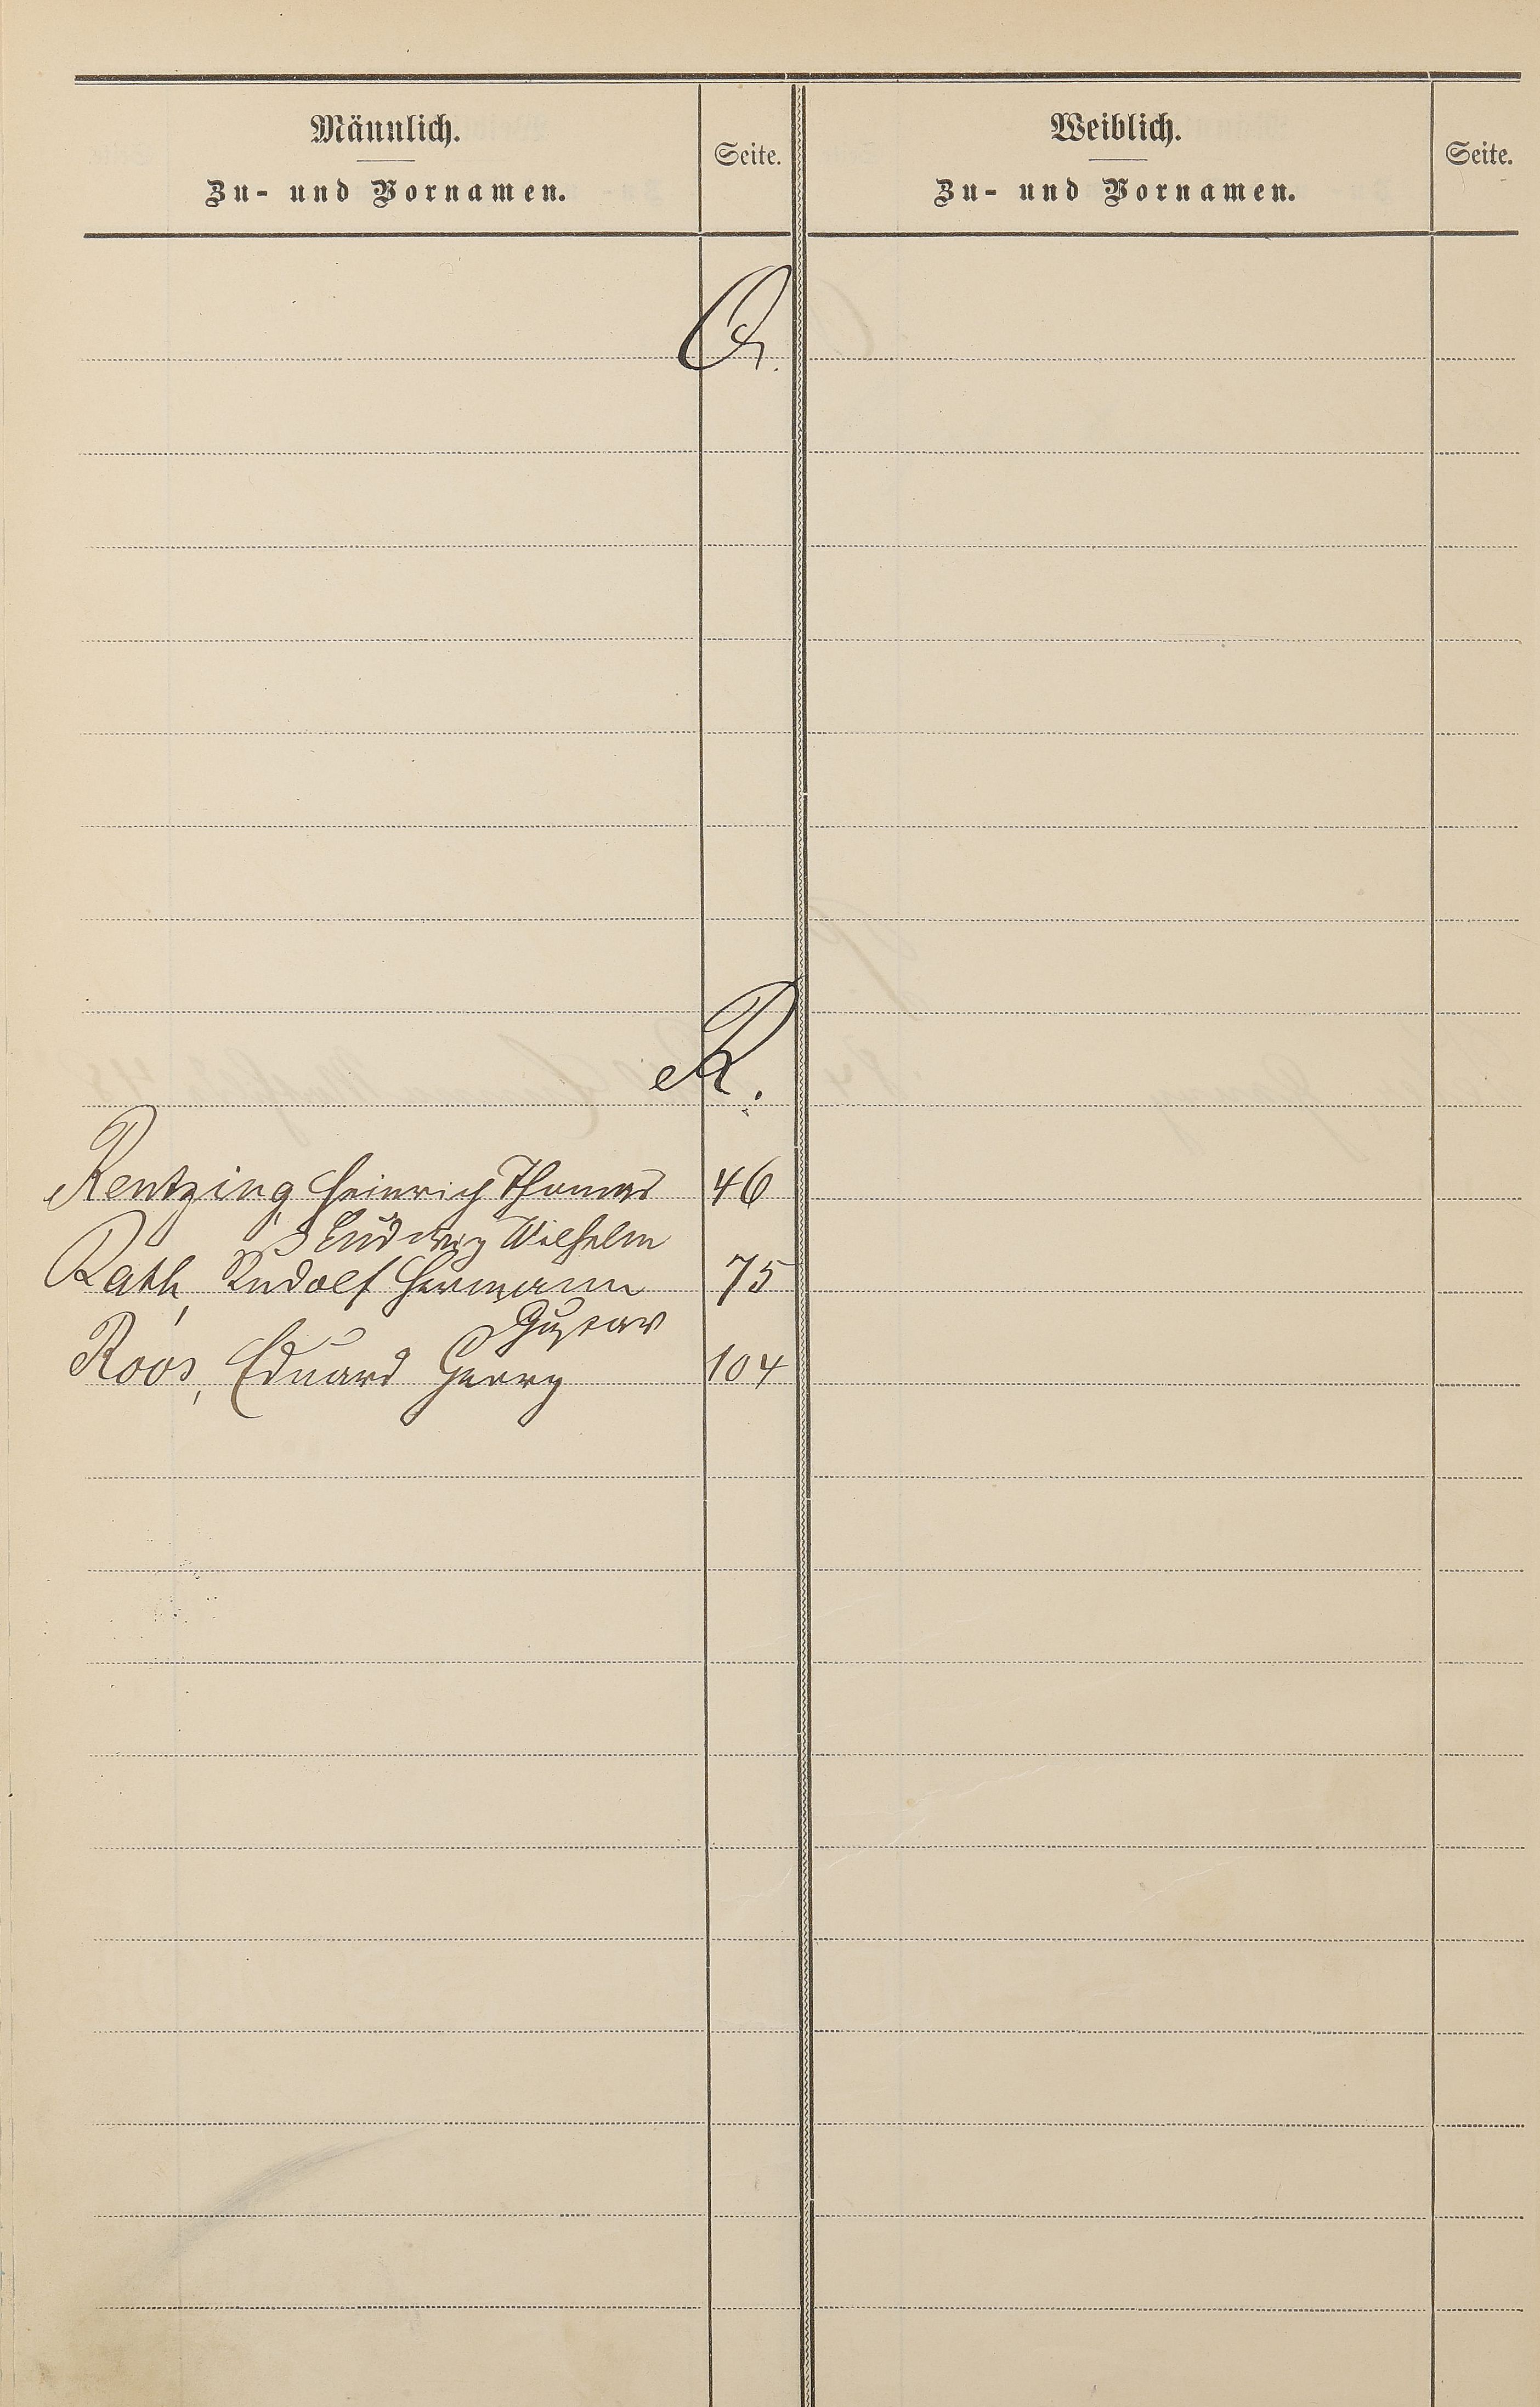 Männlich.
Zu- und Vornamen.
Seite.
Weiblich.
Zu- und Vornamen.
Seite.
Q.
R.
Rentzing, Heinrich Thomas 46
Ludwig Wilhelm
Rath, Rudolf Hermann 75
Gustav
Roos, Eduard Georg 104